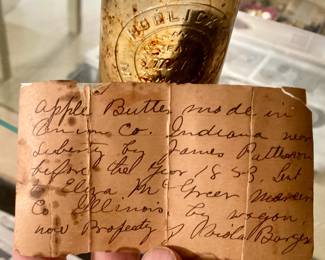 HORLICK
apple Butter made in
Union Co. Indiana near
Liberty by James Patterson
before the year 1853, Sent
to Eliza McGreer
Co Illinois. by wagon.
now Property of Viola